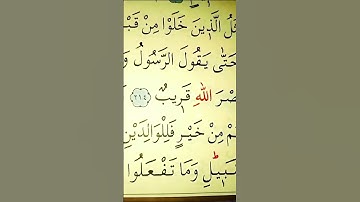 ثَلُ الَّذٖينَ خَلَوْا مِنْ قَبْ
حَتّٰى يَقُولَ الرَّسُولُ وَ
صْرَ اللّٰهِ قَرٖيبٌ ﴿٢١٤﴾
مْ مِنْ خَيْرٍ فَلِلْوَالِدَيْنِ
سَّبٖيلِ وَمَا تَفْعَلُوا